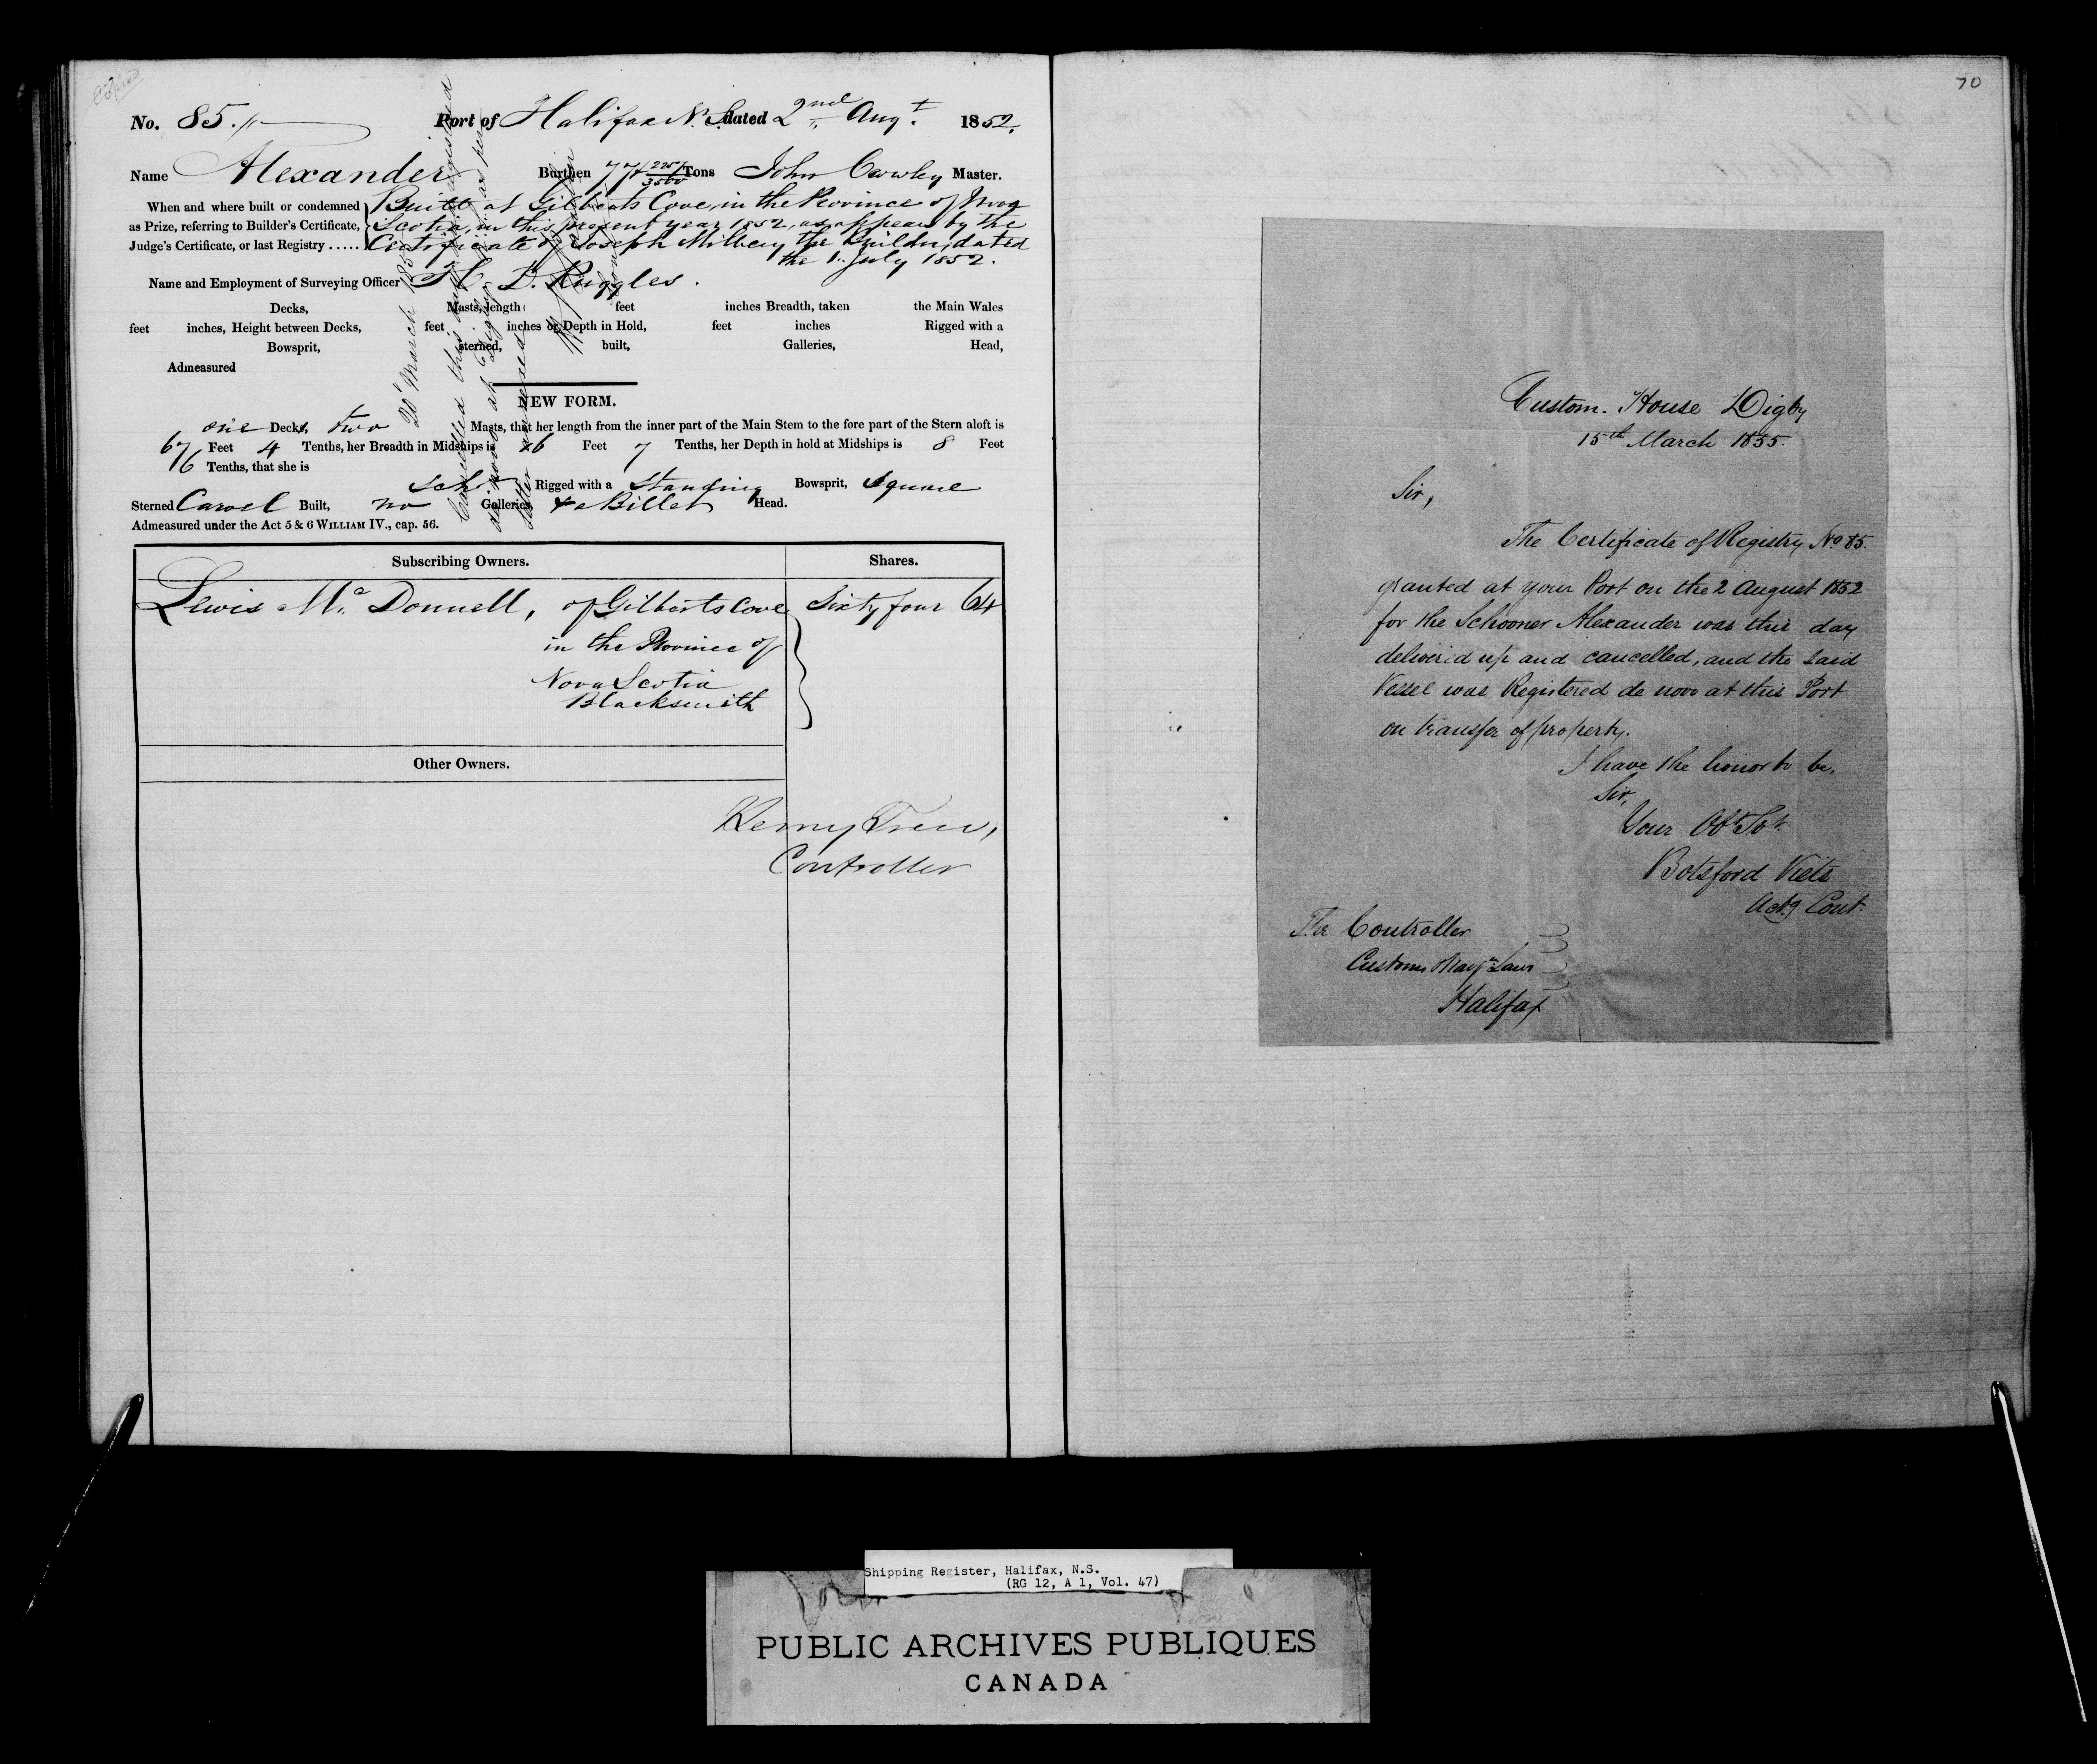 Copied
No. 85. Port of Halifax N.S. dated 2nd Augt. 1852.
Name Alexander Burthen 77 2257/3500 Tons John Cowley Master.
When and where built or condemned as Prize, referring to Builder's Certificate, Judge's Certificate, or last Registry .....
Built at Gilberts Cove, in the Province of Nova
Scotia, in this present year 1852, as appears by the
Certificate of Joseph Milbery the Builder, dated
the 1.. July 1852.
Name and Employment of Surveying Officer H. D. Ruggles.
Decks, Masts, length feet inches Breadth, taken the Main Wales
feet inches, Height between Decks, feet inches or Depth in Hold, feet inches Rigged with a
Bowsprit, sterned, built, Galleries, Head,
Admeasured
20 March 185
Cancelled this day & registered
de novo at Digby as per
letter annexed
NEW FORM.
one Decks, two Masts, that her length from the inner part of the Main Stem to the fore part of the Stern aloft is
67 Feet 4 Tenths, her Breadth in Midships is 16 Feet 7 Tenths, her Depth in hold at Midships is 8 Feet
6 Tenths, that she is
Schr Rigged with a Standing Bowsprit, Square
Sterned Carvel Built, no Galleries & a Billet Head.
Admeasured under the Act 5 & 6 WILLIAM IV., cap. 56.
Subscribing Owners. Shares.
Lewis Mc. Donnell, of Gilberts Cove Sixty four 64
in the Province of
Nova Scotia
Blacksmith
Other Owners.
Controller
70
Custom. House Digby
15th March 1855.
Sir,
The Certificate of Registry No 85.
granted at your Port on the 2 August 1852
for the Schooner Alexander was this day
delivered up and cancelled, and the said
Vessel was Registered de novo at this Port
on transfer of property.
I have the honor to be,
Sir,
Your Obt Svt.
Botsford Viets
Actg Cont.
The Controller
Customs Navgn Laws
Halifax
Shipping Register, Halifax, N.S.
(RG 12, A 1, Vol. 47)
PUBLIC ARCHIVES PUBLIQUES
CANADA